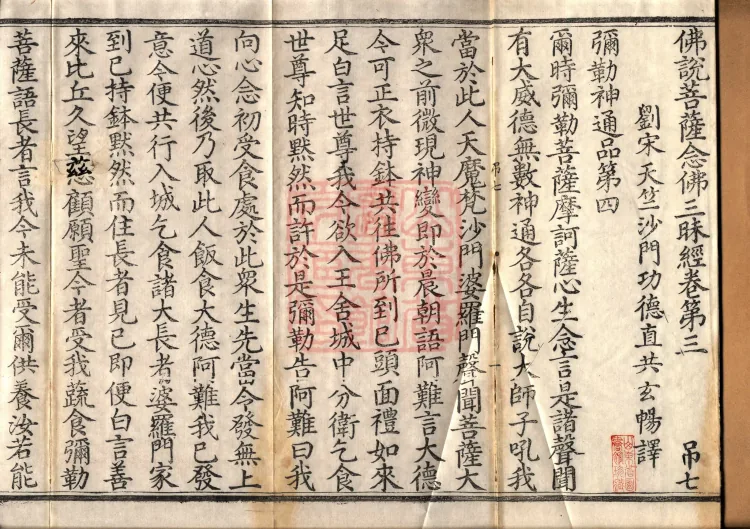 佛說菩薩念佛三昧經卷第三 弔七
劉宋天竺沙門功德直共玄暢譯
彌勒神通品第四
爾時彌勒菩薩摩訶薩心生念言是諸聲聞
有大威德無數神通各各自說大師子吼我
弔七 一
當於此人天魔梵沙門婆羅門聲聞菩薩大
眾之前微現神變即於晨朝語阿難言大德
今可正衣持鉢共往佛所到已頭面禮如來
足白言世尊我今欲入王舍城中分衛乞食
世尊知時默然而許於是彌勒告阿難曰我
向心念初受食處於此眾生先當令發無上
道心然後乃取此人飯食大德阿難我已發
意令便共行入城乞食諸大長者婆羅門家
到已持鉢默然而住長者見已即便白言善
來比丘久望慈顧願聖今者受我蔬食彌勒
菩薩語長者言我今未能受爾供養汝若能